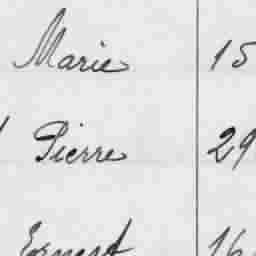 Marie 15
Pierre 29
Ernest 16